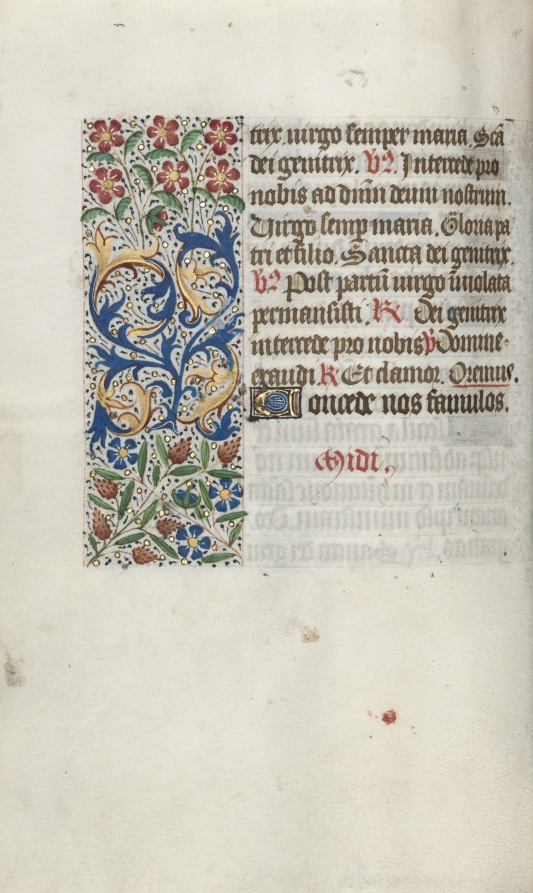 trix uirgo semper maria. Scā
dei genitrix. V2. Intercede pro
nobis ad dñm deum nostrum.
Uirgo semp maria. Gloria pa
tri et filio. Sancta dei genitrix.
V2 Post partū uirgo inuiolata
permansisti. R Dei genitrix
intercede pro nobis V Domine
exaudi. R Et clamor. Oremus.
Concede nos famulos.
Midi.